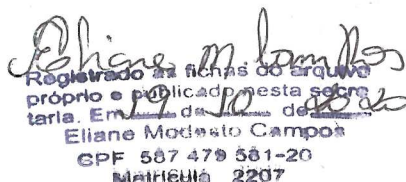 Eliane M Campos
Registrado as fichas do arquivo
próprio e publicado nesta secre
taria. Em 19 de 10 de 2020
Eliane Modesto Campos
CPF 587 479 581-20
Matrícula 2207